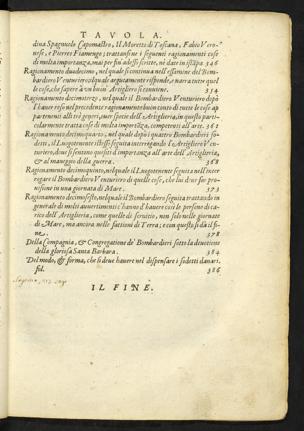 TAVOLA.
dina Spagnuolo Capomastro, Il Moretto di Toscana, Fabio Vero-
nese, e Pierres Fiamengo; trattansiue i seguenti ragionamenti cose
di molta importanza, mai per fin' adesso scritte, nè date in istāpa 346
Ragionamento duodecimo, nel quale si continua nell'essamine del Bom-
bardiero Venturiero, il quale argutamente risponde, e narra tutte quel
le cose, che sapere à vn buon' Artigliero si conuiene. 354
Ragionamento decimoterzo, nel quale il Bombardiero Venturiero dopò
l'hauer reso nel precedente ragionamento buon conto di tutte le cose ap
partenenti alli tre generi, ouer specie dell'Artiglieria, in questo parti-
colarmente tratta cose di molta importāza, competenti all'arte. 361
Ragionamento decimoquarto, nel quale dopò i quattro Bombardieri so-
detti, il Luogotenente istesso seguita interrogando l'Artigliero Ven-
turiero, doue si sentono quisiti di importanza all'arte dell'Artiglieria,
& al maneggio della guerra. 368
Ragionamento decimoquinto, nelquale il Luogotenente seguita nell'inter
rogare il Bombardiero Venturiero di quelle cose, che lui deue far pro-
uisione in vna giornata di Mare. 373
Ragionamento decimosesto, nel qual il Bombardiero seguita trattando in
generale di molti auuertimenti c'hanno d'hauere così le persone di ca-
rico dell'Artiglieria, come quelle di seruitio, non solo nelle giornate
di Mare, ma ancora nelle fattioni di Terra; e con questo si dà il fi-
ne. 378
Della Compagnia, & Congregatione de' Bombardieri sotto la deuotione
della gloriosa Santa Barbara. 384
Del modo, & forma, che si deue hauere nel dispensare i sodetti danari.
fol. 386
IL FINE.